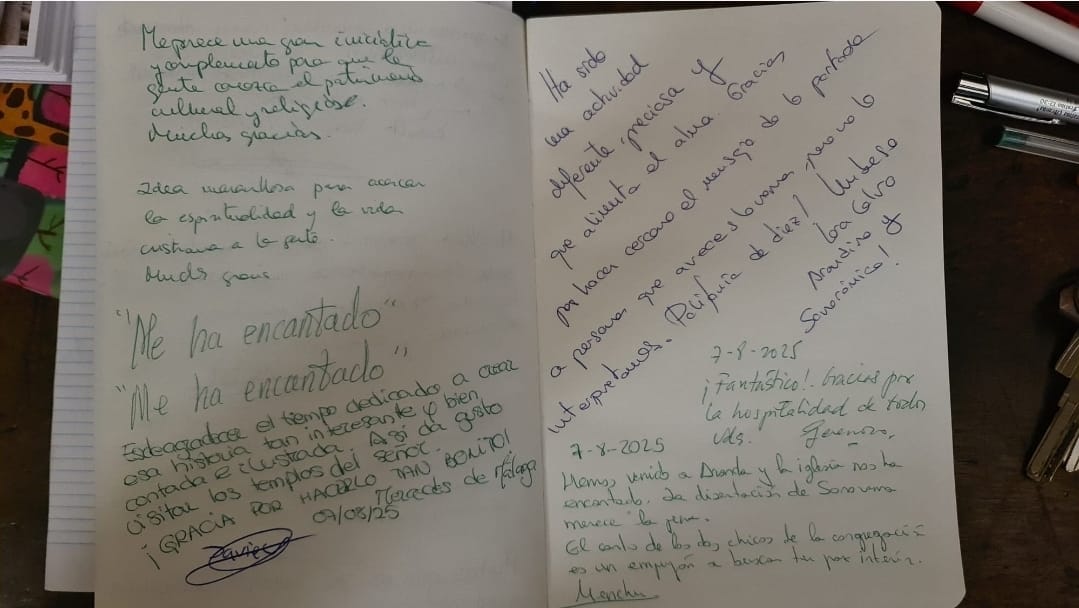 Me parece una gran iniciativa
y complemento para que la
gente conozca el patrimonio
cultural y religioso.
Muchas gracias.
Idea maravillosa para acercar
la espiritualidad y la vida
cristiana a la gente.
Muchs gracias
"Me ha encantado"
"Me ha encantado"
Es de agradecer el tiempo dedicado a crear
esa historia tan interesante y bien
contada e ilustrada. Así da gusto
visitar los templos del señor.
¡GRACIA POR HACERLO TAN BONITO!
Mercedes de Málaga
09/08/25
Ha sido
una actividad
diferente, preciosa y
que alimenta el alma. Gracias
por hacer cercano el mensaje de la portada
a personas que a veces la vemos, pero no la
interpretamos. Policfuria de diez! Un beso
Lara Calvo
Arandina y
Sonorámica!
7-8-2025
¡Fantástico!. Gracias por
la hospitalidad de todos
Vds.
7-8-2025
Hemos venido a Aranda y la iglesia nos ha
encantado. La disertación de
merece la pena.
El canto de los dos chicos de la congregación
es un empujón a buscar tu paz interior.
Menchu